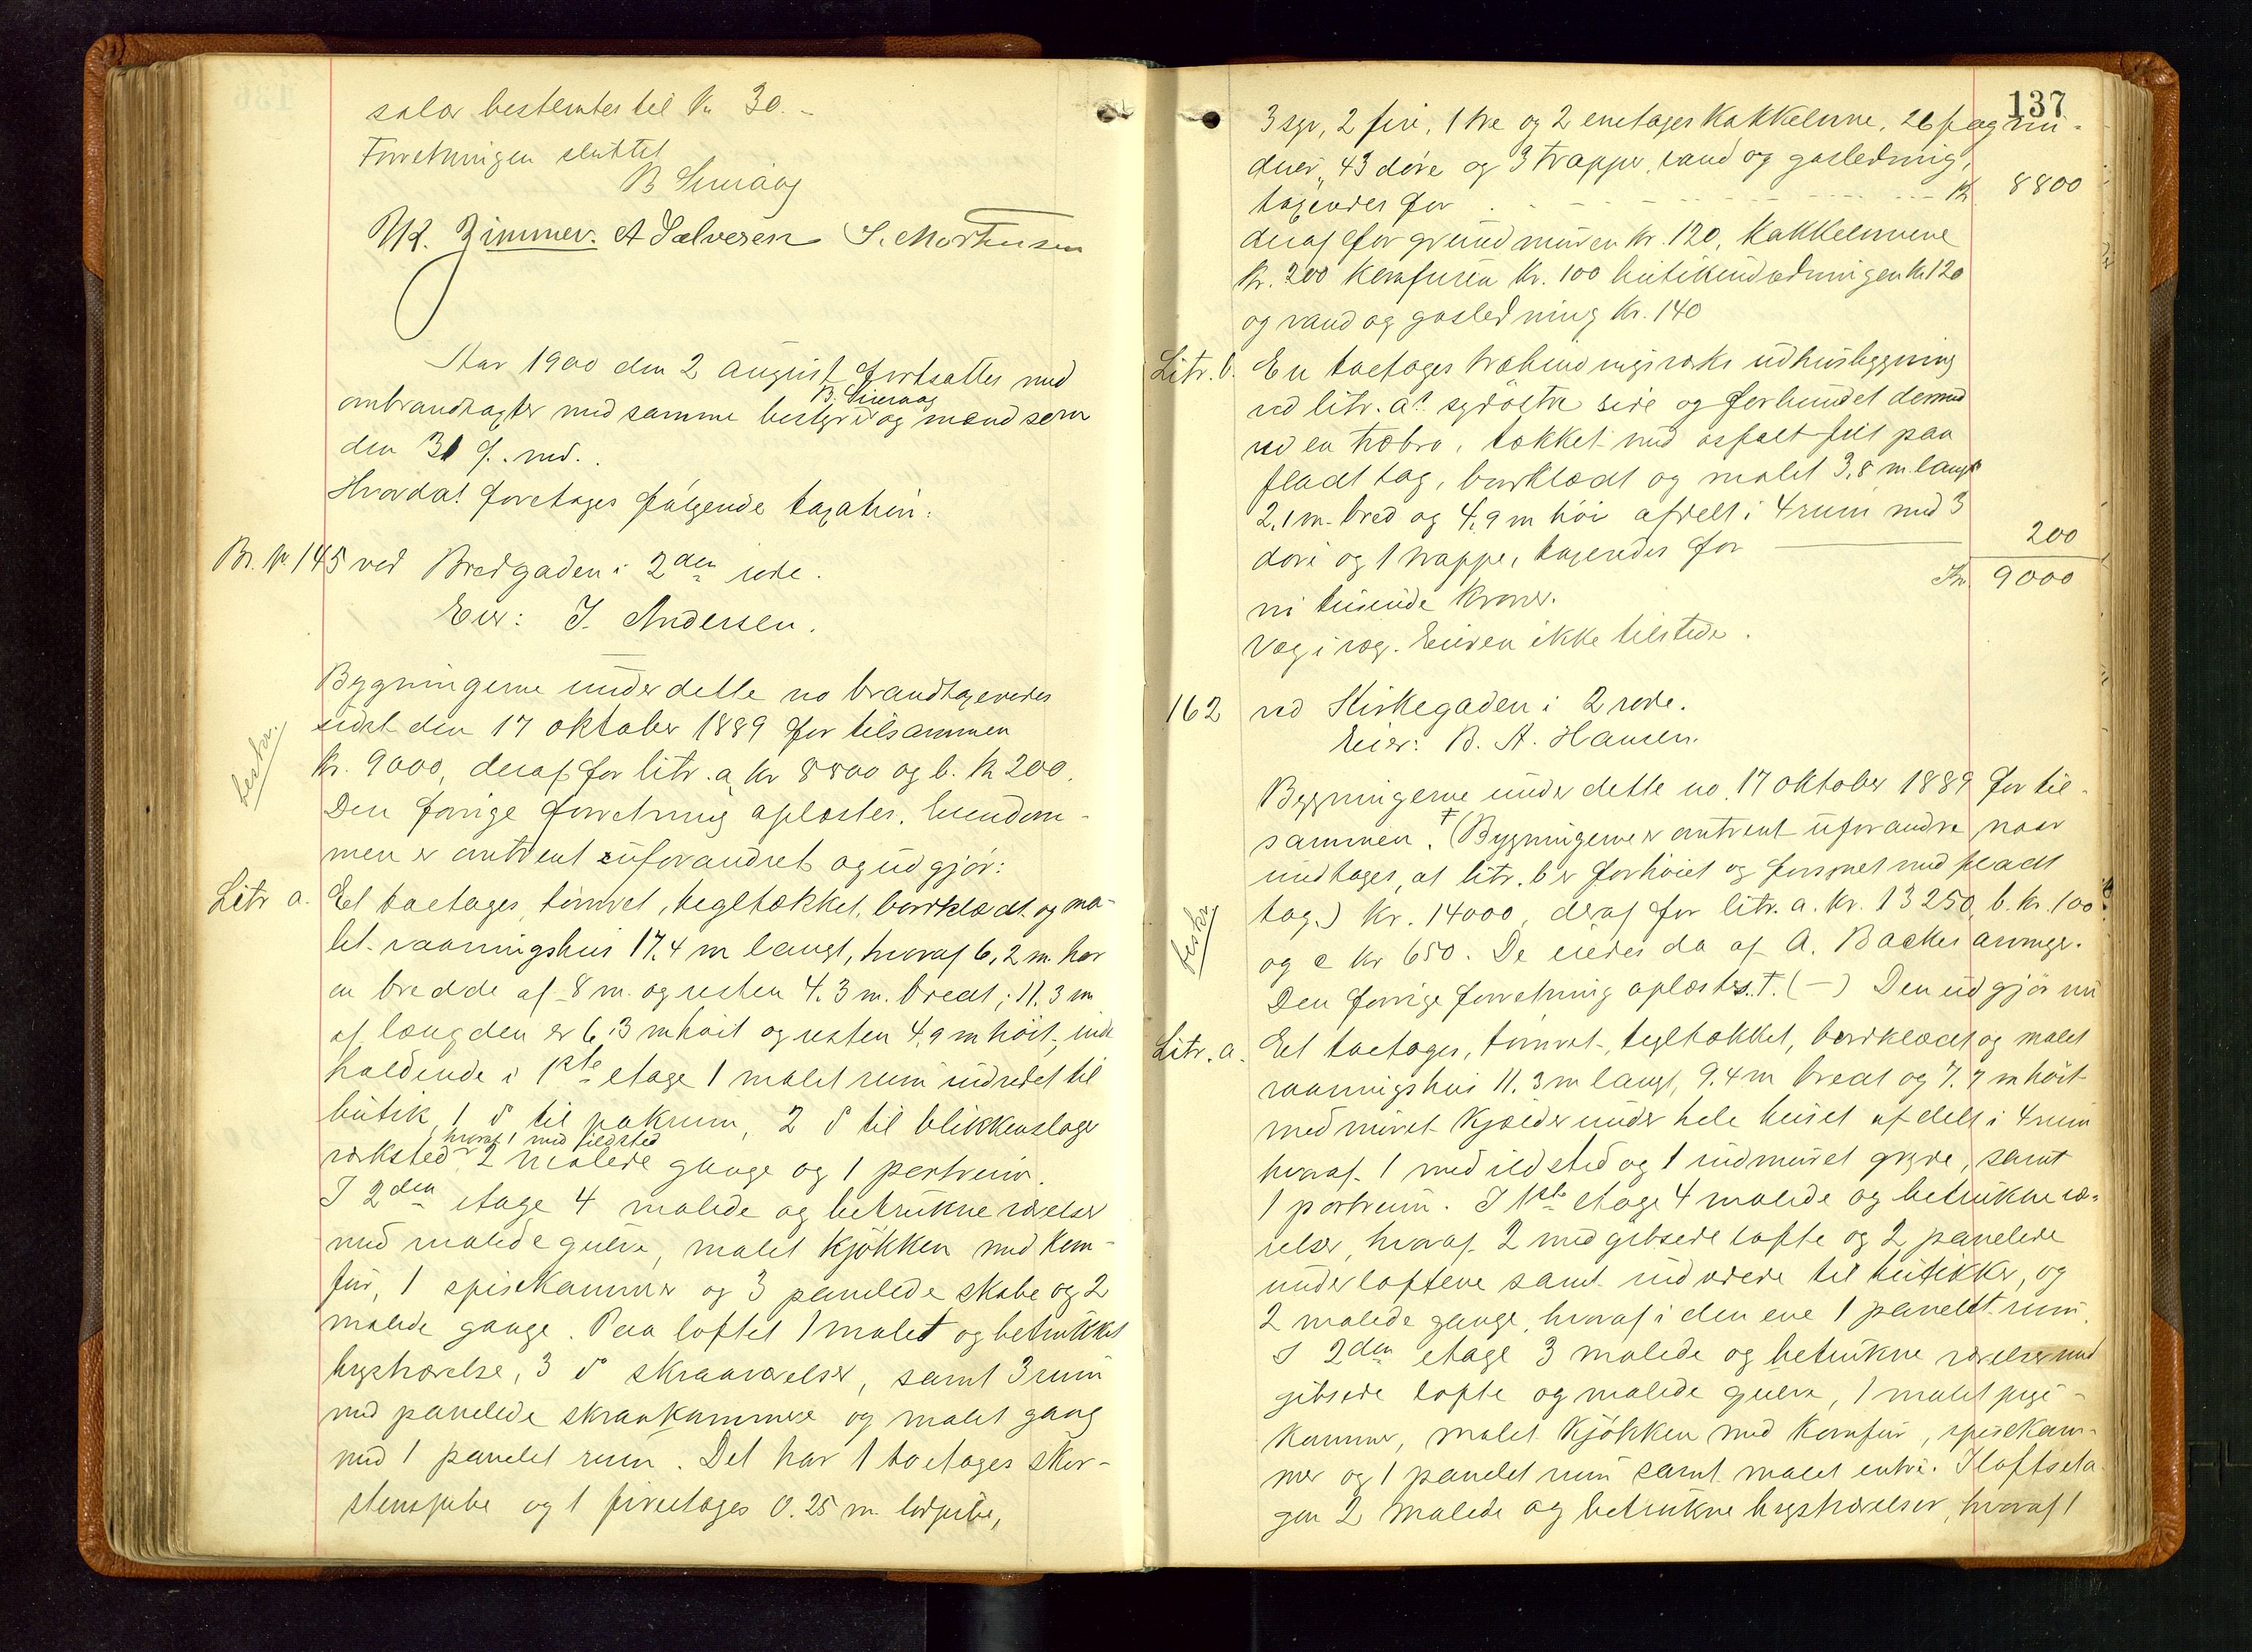 salær bestemtes til Kr. 30.-
Forretningen sluttet
B Sunraag
Zimmer. A Salvesen S. Mortensen
Aar 1900 den 2 august fortsattes med
B. Sunraag
ombrandtagster med samme bestyrer og mænd som
den 31 f. md.
Hvordat foretages følgende taxation:
Br. № 145 ved Bredgaden i 2den rode.
Eier: J. Andersen.
Bygningerne under dette no brandtaxeredes
sidst den 17 oktober 1889 for tilsammen
beskr.
Kr. 9000, deraf for litr. a kr 8800 og b. Kr 200.
Den forrige forretning oplæstes. Eiendom-
men er omtrent uforandret og udgjør:
Litr a. Et toetages, tømret, tegltækket, bordklædt og ma-
let vaaningshus 17.4 m langt, hvoraf 6,2 m. har
en bredde af 8 m. og resten 4.3 m. bredt; 11.3 m
af længden er 6.3 m høit og resten 4.9 m høit, inde
holdende i 1ste etage 1 malet rum indredet til
butik, 1 do til pakrum, 2 do til blikkenslager
hvoraf 1 med ildsted
værksted, 2 malede gange og 1 portrum.
I 2den etage 4 malede og betrukne værelser
med malede gulve, malet kjøkken med kom-
fur, 1 spisekammer og 3 panelede skabe og 2
malede gange. Paa loftet 1 malet og betrukket
kvistværelse, 3 do skraaværelser, samt 3 rum
med panelede skraakummere og malet gang
med 1 panelet rum. Det har 1 toetages skor-
stenspibe og 1 fireetages 0.25 m. lodpibe,
137
3 syv, 2 fire, 1 tre og 2 enetages kakkelovne. 26 fag vin-
duer, 43 døre og 3 trapper, vand og gasledning,
taxeredes for - - - - - - - Kr. 8800
deraf for grundmuren kr. 120, kakkelovnene
kr. 200 komfuren kr. 100 butikindredningen kr 120
og vand og gasledning kr. 140
Litr. b. En toetages træbindingsværks udhusbygning
ved litr. a's sydøstre side og forbundet dermed
ved en træbro, tækket med asfalt filt paa
fladt tag, bordklædt og malet 3,8 m. langt
2,1 m. bred og 4,9 m høi afdelt i 4 rum med 3
døre og 1 trappe, taxeredes for 200
Kr. 9000
ni tusinde kroner.
Væg i væg. Eieren ikke tilstede.
162 ved Kirkegaden i 2 rode.
Eier: B. A. Hansen.
Bygningerne under dette no. 17 oktober 1889 for til-
sammen. † (Bygningerne er omtrent uforandre, naar
undtages, at litr. b er forhøiet og forsynet med fladt
tag.) kr. 14000, deraf for litr. a. kr. 13250, b. kr. 100
beskr.
og c kr 650. De eiedes da af A. Backes arvinger.
Den forrige forretning oplæstes. †. (-) Den udgjør nu
Litr. a. Et toetages, tømret, tegltækket, bordklædt og malet
vaaningshus 11.3 m langt, 9.4 m bredt og 7.7 m høit
med muret kjælder under hele huset afdelt i 4 rum
hvoraf 1 med ildsted og 1 indmuret gryde, samt
1 portrum. I 1ste etage 4 malede og betrukne væ-
relser, hvoraf 2 med gibsede lofte og 2 panelede
under loftene samt indredede til butikker, og
2 malede gange, hvoraf i den ene 1 panelt rum.
I 2den etage 3 malede og betrukne værelser med
gibsede lofte og malede gulve, 1 malet pige-
kammer, malet kjøkken med komfur, spisekam-
mer og 1 panelet rum samt malet entre. I loftseta-
gen 2 malede og betrukne kvistværelser, hvoraf 1